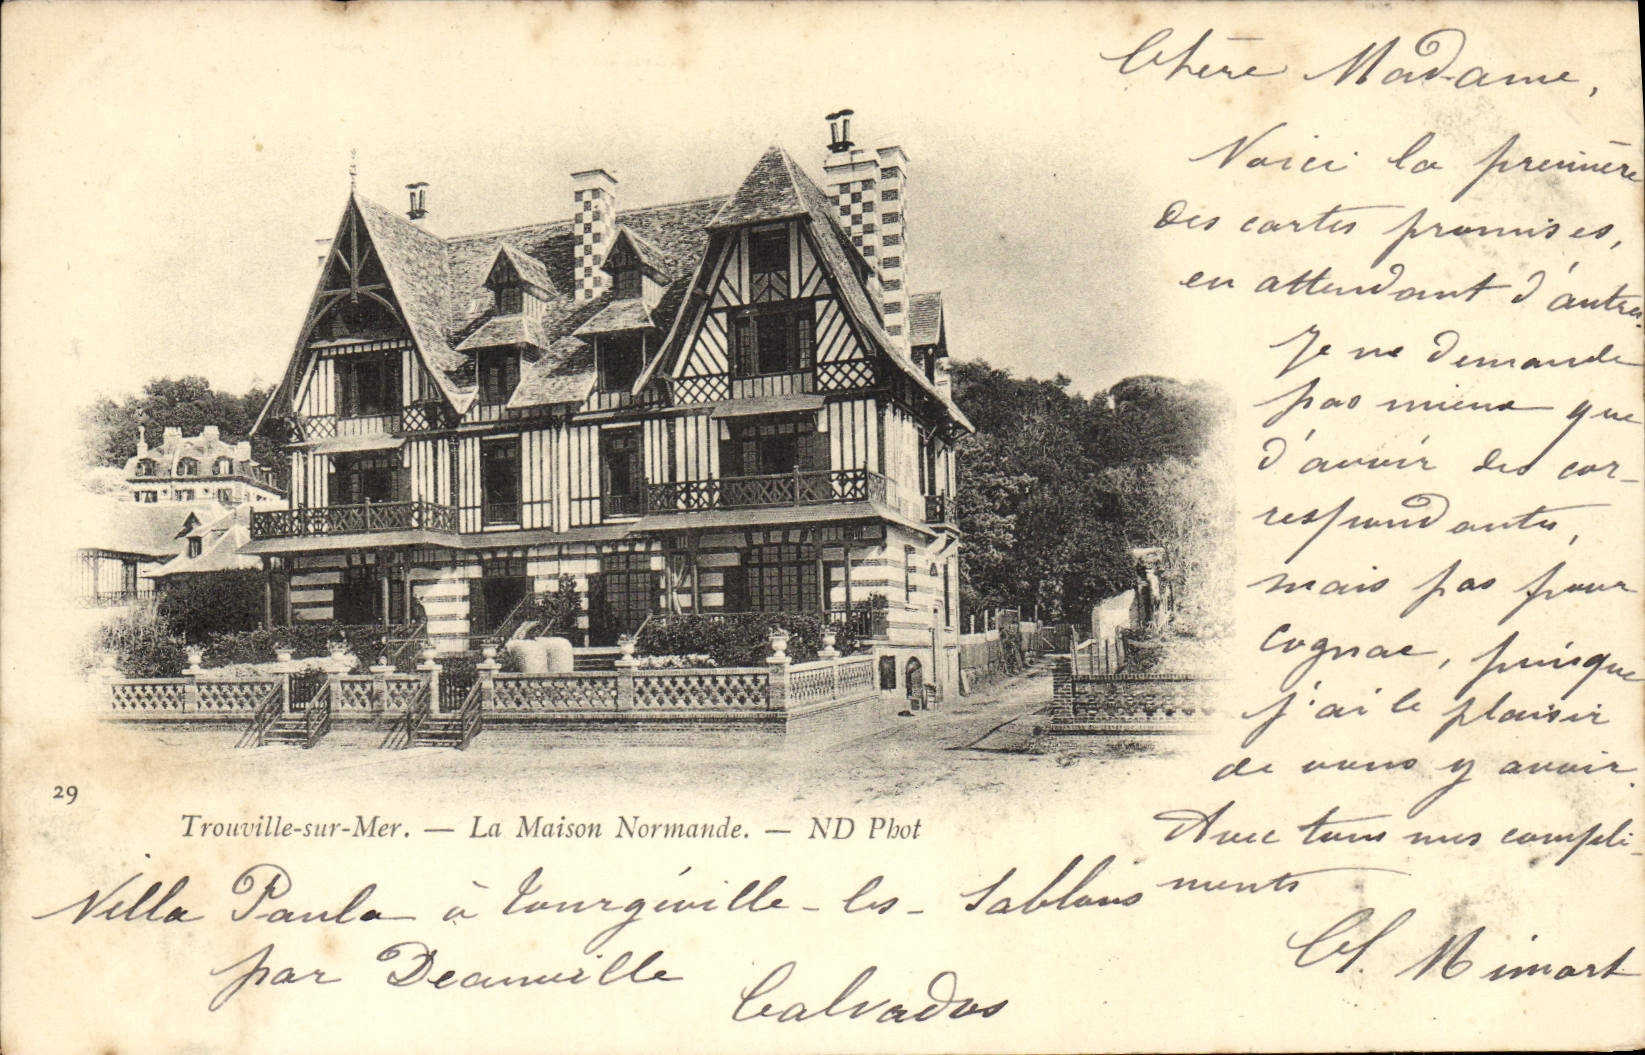 Chère Madame,
Voici la première
des cartes promises,
en attendant d'autres.
Je ne demande
pas mieux que
d'avoir des cor-
respondantes,
mais pas pour
cognac, puisque
j'ai le plaisir
de vous y avoir.
Avec tous mes compli-
ments
Ch. Mimart
29
Trouville-sur-Mer. — La Maison Normande. — ND Phot
Villa Paula à Tourgéville-les-Sablons
par Deauville
Calvados